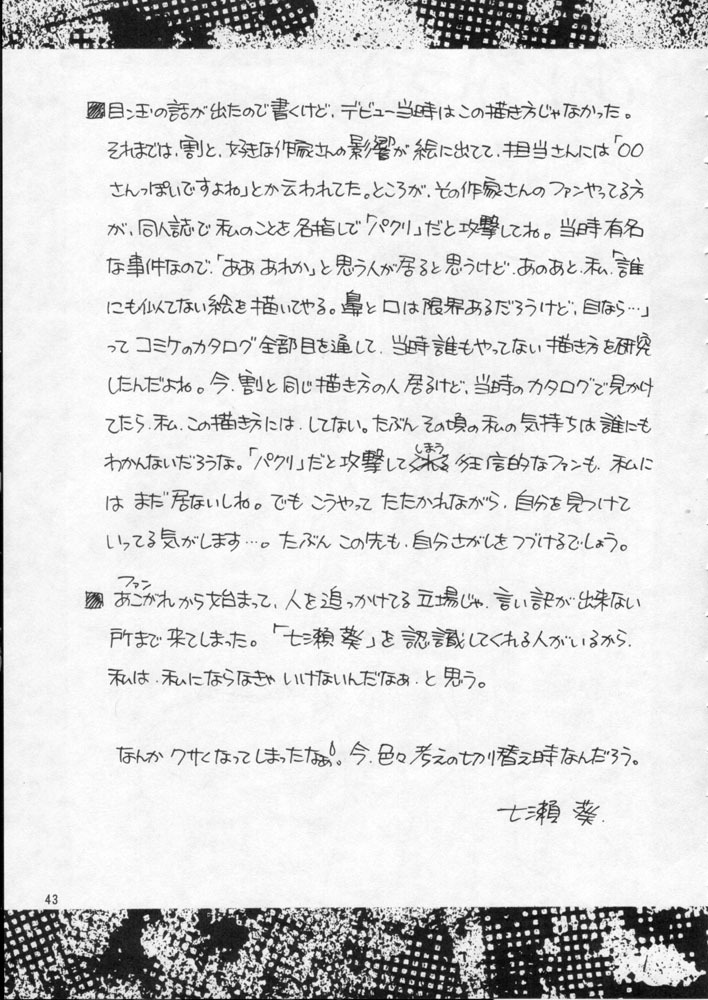 目ン玉の話が出たので書くけど、デビュー当時はこの描き方じゃなかった。
それまでは、割と、好きな作家さんの影響が絵に出てて、担当さんには「〇〇
さんっぽいですよね」とか云われてた。ところが、その作家さんのファンやってる方
が、同人誌で私のことを名指しで「パクリ」だと攻撃してね。当時有名
な事件なので、「ああ あれか」と思う人が居ると思うけど、あのあと、私、「誰
にも似てない絵を描いてやる。鼻と口は限界あるだろうけど、目なら…」
って コミケのカタログ全部目を通して、当時誰もやってない描き方を研究
したんだよね。今、割と同じ描き方の人居るけど、当時のカタログで見かけ
てたら、私、この描き方には、してない。たぶん その頃の私の気持ちは誰にも
わかんないだろうな。「パクリ」だと攻撃してしまう狂信的なファンも、私に
は まだ居ないしね。でも こうやって たたかれながら、自分を見つけて
いってる気がします…。たぶん この先も、自分さがしをつづけるでしょう。
ファン
あこがれから始まって、人を追っかけてる立場じゃ、言い訳が出来ない
所まで来てしまった。「七瀬 葵」を認識してくれる人がいるから、
私は、私にならなきゃ いけないんだなぁ、と思う。
なんか クサくなってしまったなぁ。今、色々 考えの切り替え時なんだろう。
七瀬 葵.
43